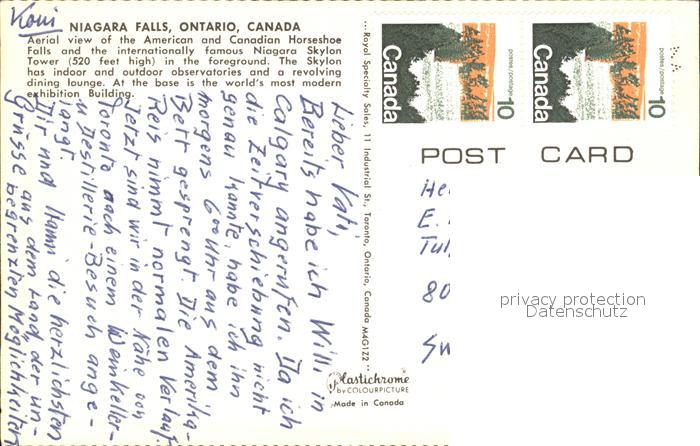 Koni
NIAGARA FALLS, ONTARIO, CANADA
Aerial view of the American and Canadian Horseshoe
Falls and the internationally famous Niagara Skylon
Tower (520 feet high) in the foreground. The Skylon
has indoor and outdoor observatories and a revolving
dining lounge. At the base is the world's most modern
exhibition Building.
Lieber Vati,
Bereits habe ich Willi in
Calgary angerufen. Da ich
die Zeitverschiebung nicht
genau kannte, habe ich ihn
morgens 6 00 Uhr aus dem
Bett gesprengt. Die Amerika
Reis nimmt normalen Verlauf
Jetzt sind wir in der Nähe von
Toronto nach einem Weinkeller-
u Destillerie-Besuch ange-
langt.
Dir und Mami die herzlichsten
Grüsse aus dem Land der un-
begrenzten Möglichkeiten
...Royal Specialty Sales, 11 Industrial St., Toronto, Ontario, Canada M4G1Z2...
Plastichrome
by COLOURPICTURE
Made in Canada
Canada
postes/postage
10
Canada
postes/postage
10
POST CARD
He
E.
Tul
80
privacy protection
Datenschutz